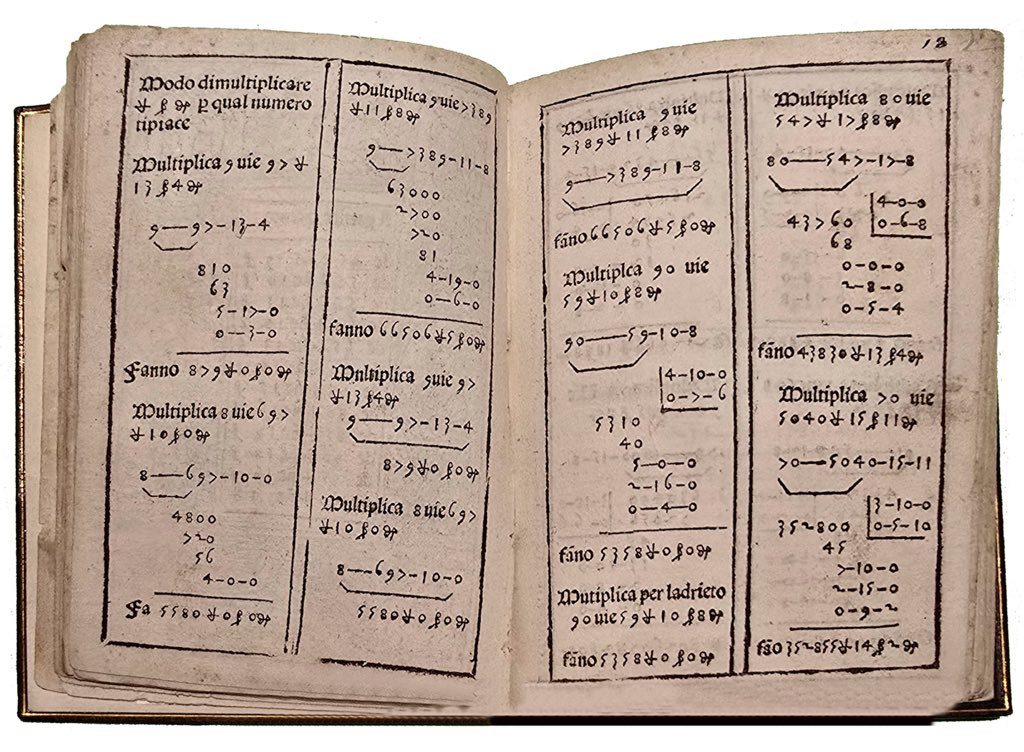 Modo dimultiplicare
₶ ß ₰ ꝑ qual numero
tipiace
Multiplica 9 uie 97 ₶
13 ß 4 ₰
9—97-13-4
810
63
5-17-0
0—3-0
Fanno 879 ₶ 0 ß 0 ₰
Multiplica 8 uie 697
₶ 10 ß 0 ₰
8—697-10-0
4800
720
56
4-0-0
Fa 5580 ₶ 0 ß 0 ₰
Multiplica 9 uie 7389
₶ 11 ß 8 ₰
9—7389-11-8
63000
2700
720
81
4-19-0
0—6-0
fanno 66506 ₶ 5 ß 0 ₰
Mnltiplica 9 uie 97
₶ 13 ß 4 ₰
9—97-13-4
879 ₶ 0 ß 0 ₰
Multiplica 8 uie 697
₶ 10 ß 0 ₰
8—697-10-0
5580 ₶ 0 ß 0 ₰
Multiplica 9 uie
7389 ₶ 11 ß 8 ₰
9—7389-11-8
fãno 66506 ₶ 5 ß 0 ₰
Multiplca 90 uie
59 ₶ 10 ß 8 ₰
90—59-10-8
4-10-0
0-7-6
5310
40
5-0-0
2-16-0
0-4-0
fãno 5358 ₶ 0 ß 0 ₰
Mutiplica per ladrieto
90 uie 59 ₶ 10 ß 8 ₰
fãno 5358 ₶ 0 ß 0 ₰
Multiplica 80 uie
547 ₶ 17 ß 8 ₰
80—547-17-8
4-0-0
43760 0-6-8
68
0-0-0
2-8-0
0-5-4
fãno 43830 ₶ 13 ß 4 ₰
Multiplica 70 uie
5040 ₶ 15 ß 11 ₰
70—5040-15-11
3-10-0
352800 0-5-10
45
7-10-0
2-15-0
0-9-2
fão 352855 ₶ 14 ß 2 ₰